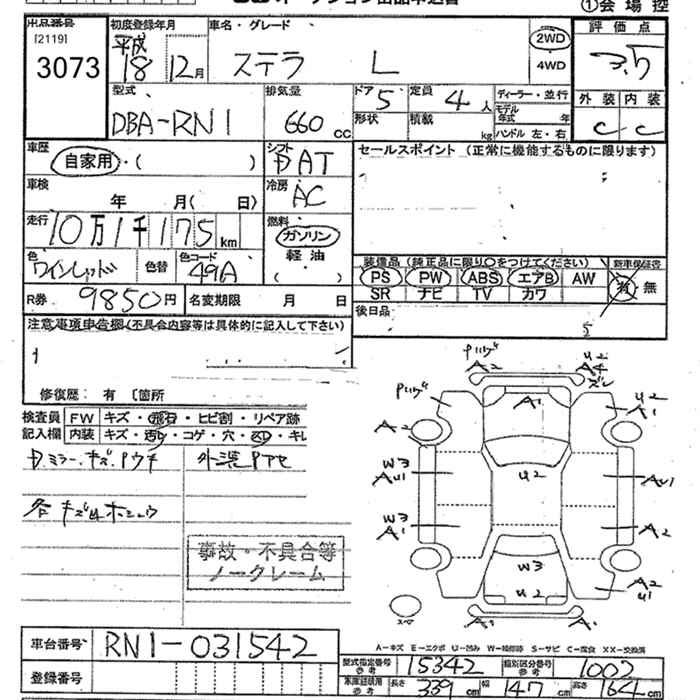 ①会場控
出品番号 初度登録年月 車名・グレード 評価点
[2119] 平成
3073 18 12月 ステラ L 2WD 3.5
・4WD
型式 排気量 ドア 定員 ディーラー・並行 外装 内装
DBA-RN1 660cc 5 4人 モデル年式 年 C C
形状 積載 kg ハンドル 左・右
車歴 シフト セールスポイント (正常に機能するものに限ります)
自家用・( ) FAT
車検 冷房
年 月( 日) AC
走行 燃料
10万1千175km ガソリン
色 色替 色コード 軽油
ワインレッド 49A ・( )
装備品 (純正品に限り○をつけてください) 新車保証書
PS PW ABS エアB AW 有・無
SR ナビ TV カワ
R券 9850円 名変期限 月 日
後日品
注意事項申告欄(不具合内容等は具体的に記入して下さい)
修復歴: 有 〔箇所
検査員 FW キズ・飛石・ヒビ割・リペア跡
記入欄 内装 キズ・汚れ・コゲ・穴・スレ・キレ
ミラーキズ 外装アセ
各キズ凹ホシュウ
Pハゲ U2 A4 ズレ
Pハゲ A1 U2 A1
A2
W3 AU1 U2 AU1
W3 A1 A2
W3
U2 A2 U1
A1 A1
スペア
事故・不具合等
ノークレーム
車台番号 RN1-031542
A-キズ E-エクボ U-凹み W-補修跡 S-サビ C-腐食 XX-交換済
型式指定番号 参考 15342 類別区分番号 参考 1002
登録番号
車庫証明用 参考 長さ 339cm 幅 147cm 高さ 164cm